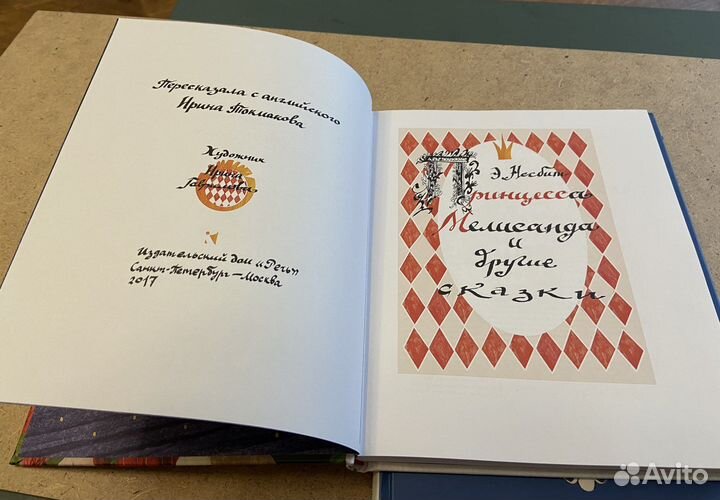 Пересказала с английского
Ирина Токмакова
Художник
Ирина
Издательский дом «Речь»
Санкт-Петербург – Москва
2017
Э. Несбит
Принцесса
Мелисанда
и
другие
сказки
Avito